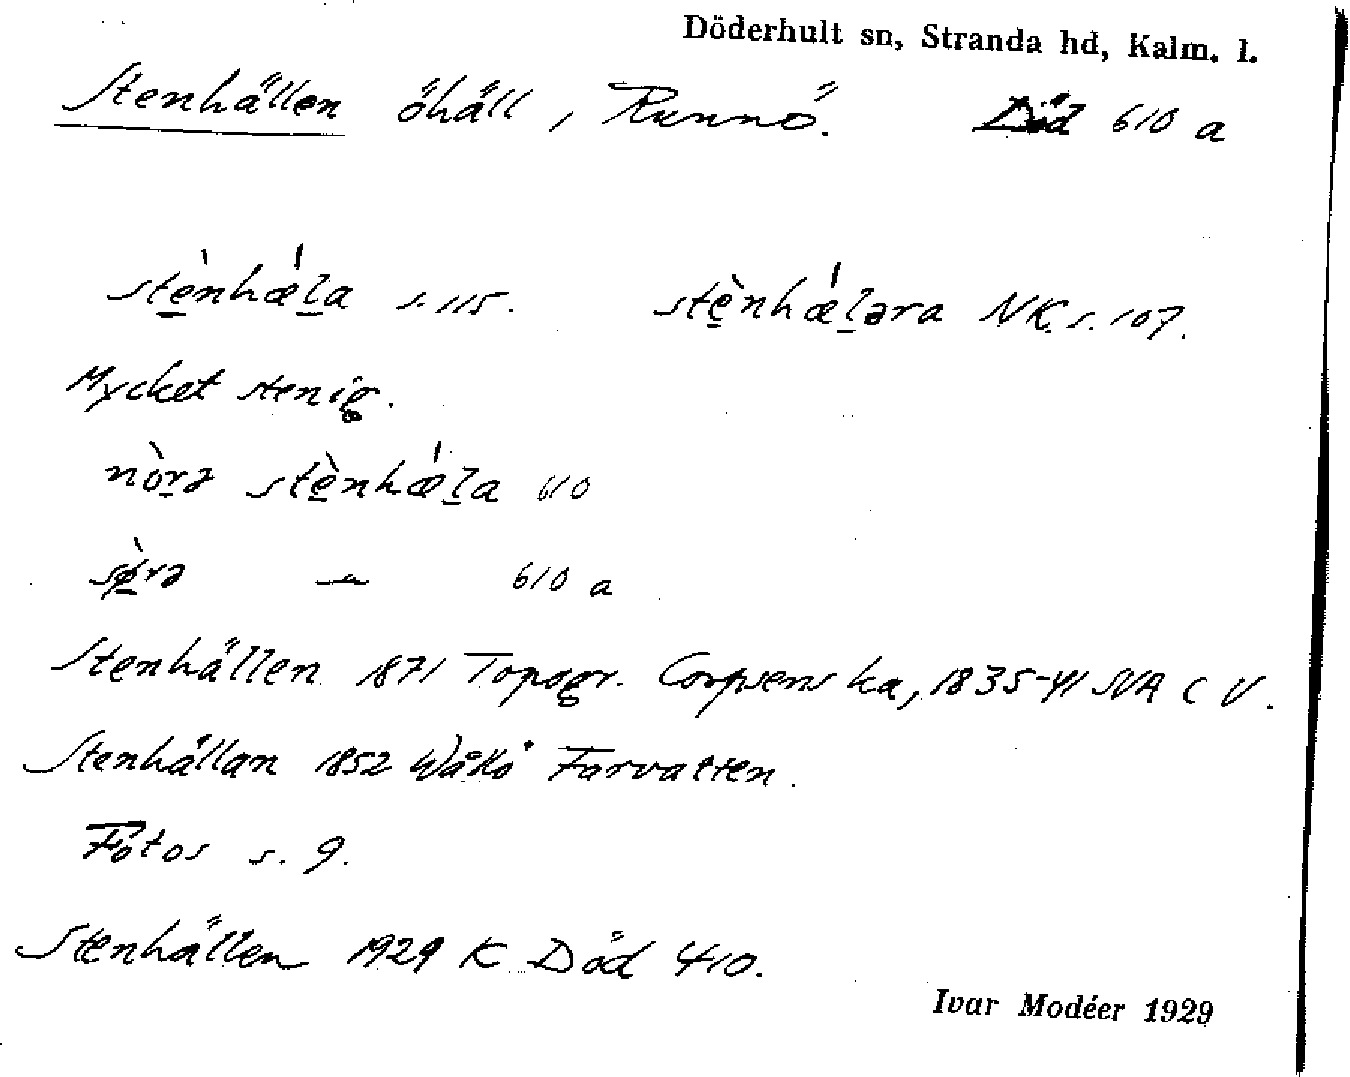 Döderhult sn, Stranda hd, Kalm. l.
Stenhällen öhäll, Runnö. Död 610 a
stè̱nhǽḻa s. 115. stè̱nhǽḻəra NK. s. 107.
Mycket stenig.
nòṟə stè̱nhǽḻa 610
sø̱̀rə —"— 610 a
Stenhällen 1871 Topogr. Corpsens ka, 1835-41 SVA C V.
Stenhällan 1852 Wåkö Farvatten.
Fotos s. 9.
Stenhällen 1929 K Död 410.
Ivar Modéer 1929